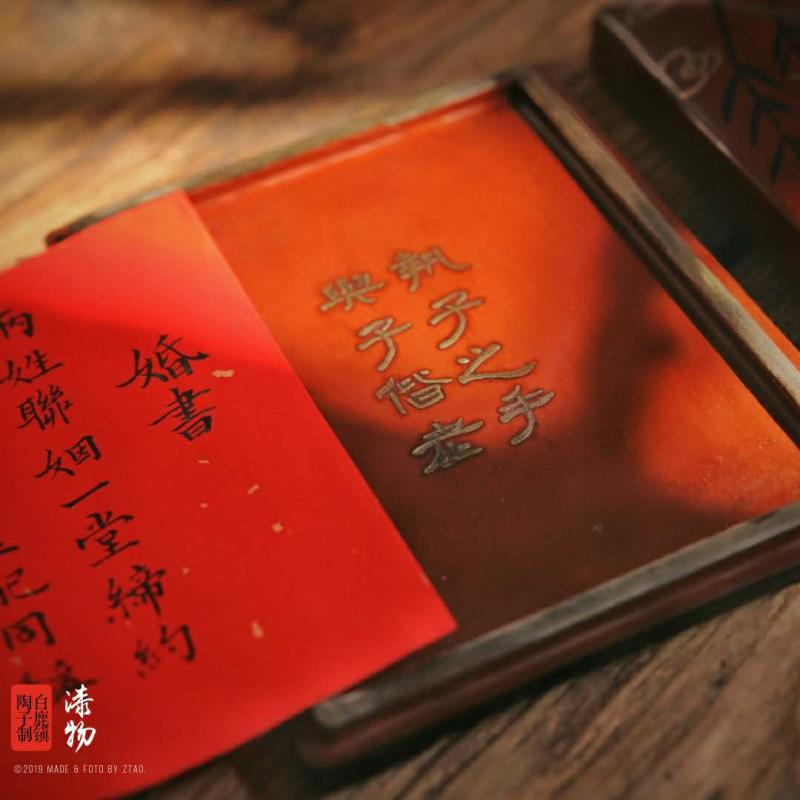 婚書
兩姓聯姻一堂締約
配同
執子之手
與子偕老
白鹿鎮
陶子制
漆物
©2019 MADE & FOTO BY ZTAO.